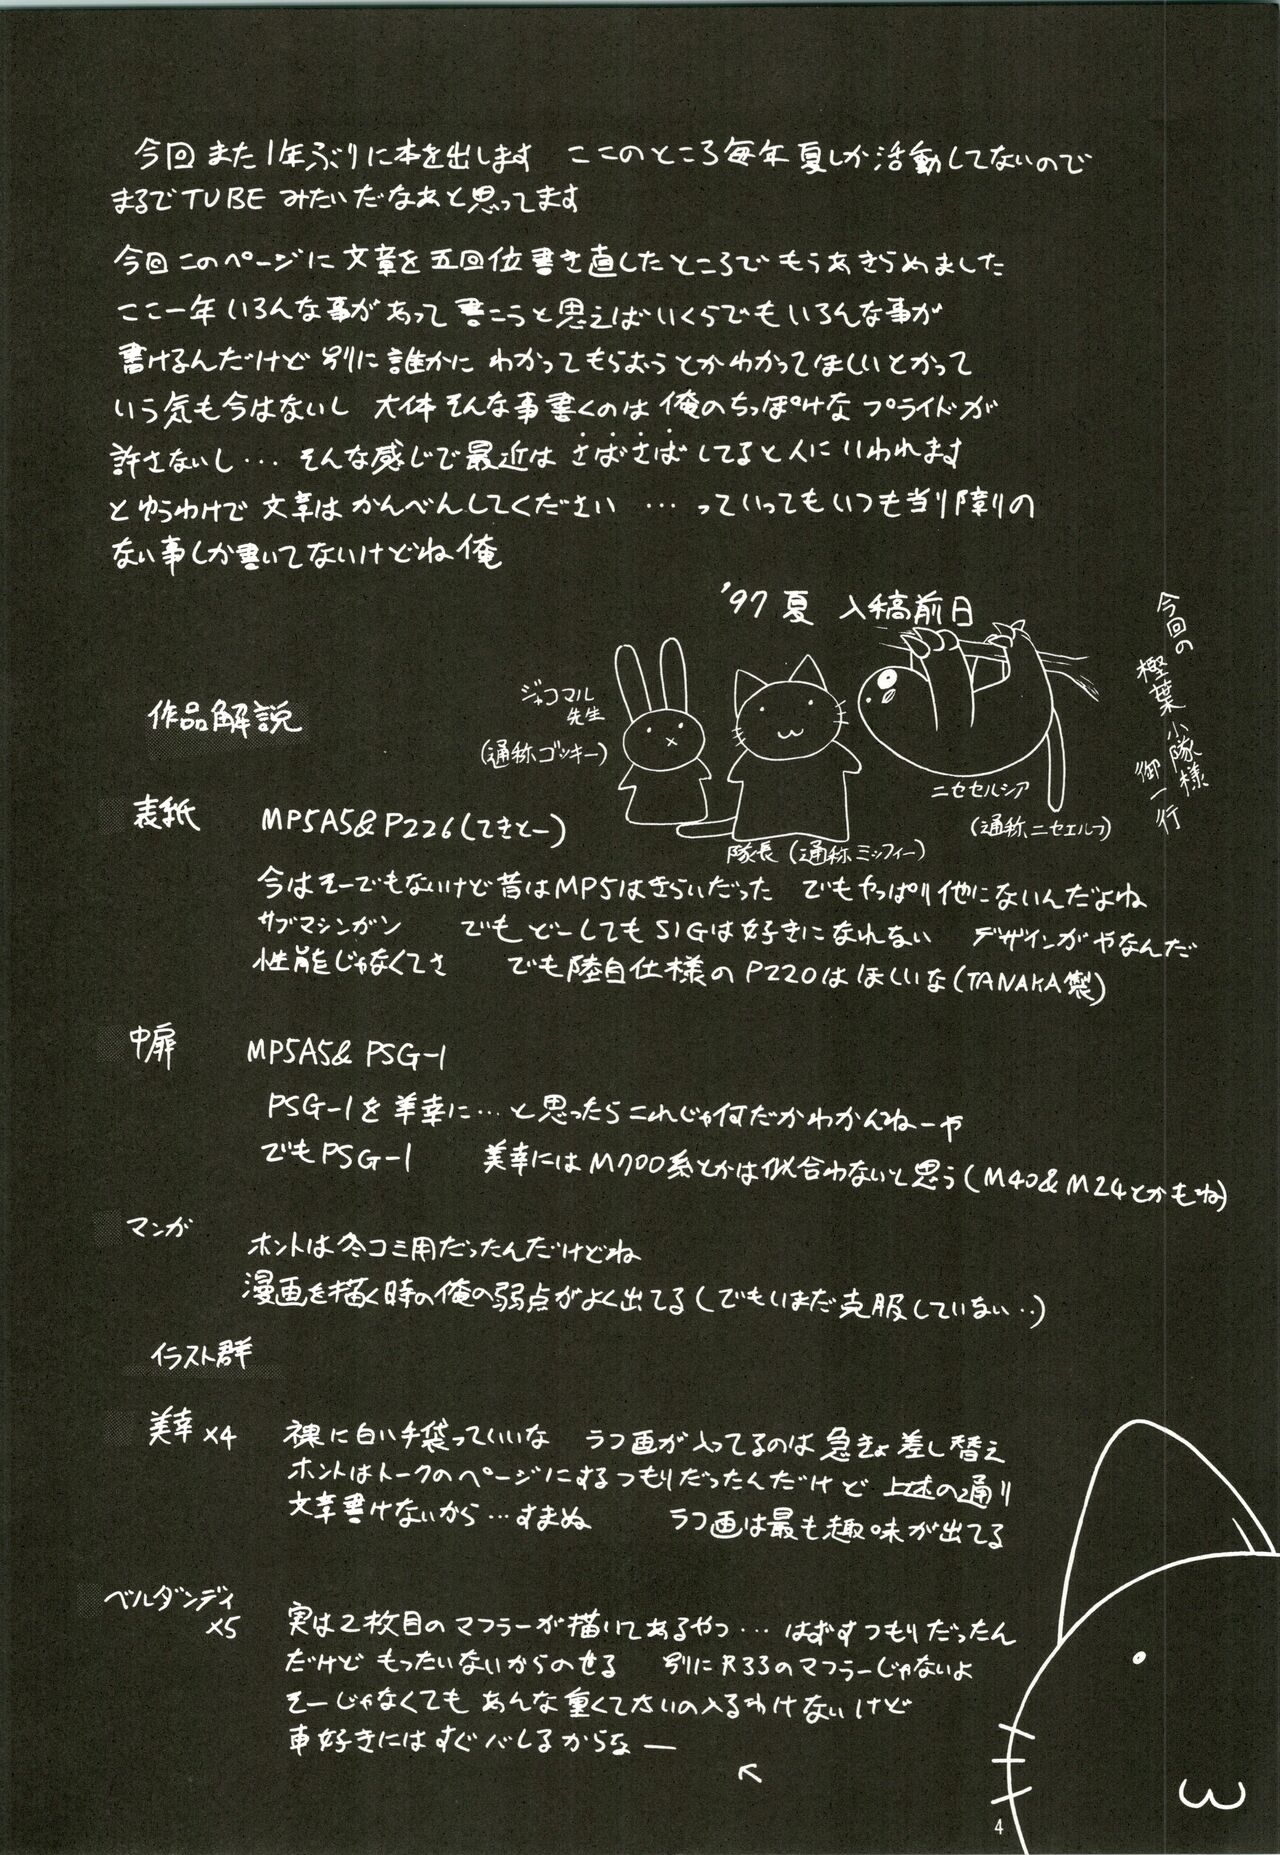 今回また1年ぶりに本を出します ここのところ毎年夏しか活動してないので
まるでTUBEみたいだなあと思ってます
今回このページに文章を五回位書き直したところでもうあきらめました
ここ一年いろんな事があって書こうと思えばいくらでもいろんな事が
書けるんだけど別に誰かにわかってもらおうとかわかってほしいとかって
いう気も今はないし 大体そんな事書くのは俺のちっぽけなプライドが
許さないし… そんな感じで最近はさばさばしてると人にいわれます
とゆうわけで文章はかんべんしてください …っていってもいつも当り障りの
ない事しか書いてないけどね俺
'97夏 入稿前日
今回の
樫葉小隊様
御一行
ジャコマル
先生
(通称ゴッキー)
隊長(通称ミッフィー)
ニセセルシア
(通称ニセエルフ)
作品解説
表紙 MP5A5&P226(てきとー)
今はそーでもないけど昔はMP5はきらいだった でもやっぱり他にないんだよね
サブマシンガン でもどーしてもSIGは好きになれない デザインがやなんだ
性能じゃなくてさ でも陸自仕様のP220はほしいな(TANAKA製)
中扉 MP5A5& PSG-1
PSG-1を美幸に…と思ったらこれじゃ何だかわかんねーや
でもPSG-1 美幸にはM700系とかは似合わないと思う(M40&M24とかもね)
マンガ ホントは冬コミ用だったんだけどね
漫画を描く時の俺の弱点がよく出てる(でもいまだ克服していない‥)
イラスト群
美幸×4 裸に白い手袋っていいな ラフ画が入ってるのは急きょ差し替え
ホントはトークのページにするつもりだったんだけど 上述の通り
文章書けないから…すまぬ ラフ画は最も趣味が出てる
ベルダンディ
×5 実は2枚目のマフラーが描いてあるやつ… はずすつもりだったん
だけど もったいないからのせる 別にR33のマフラーじゃないよ
そーじゃなくても あんな重くてでかいの入るわけないけど
車好きにはすぐバレるからなー
4